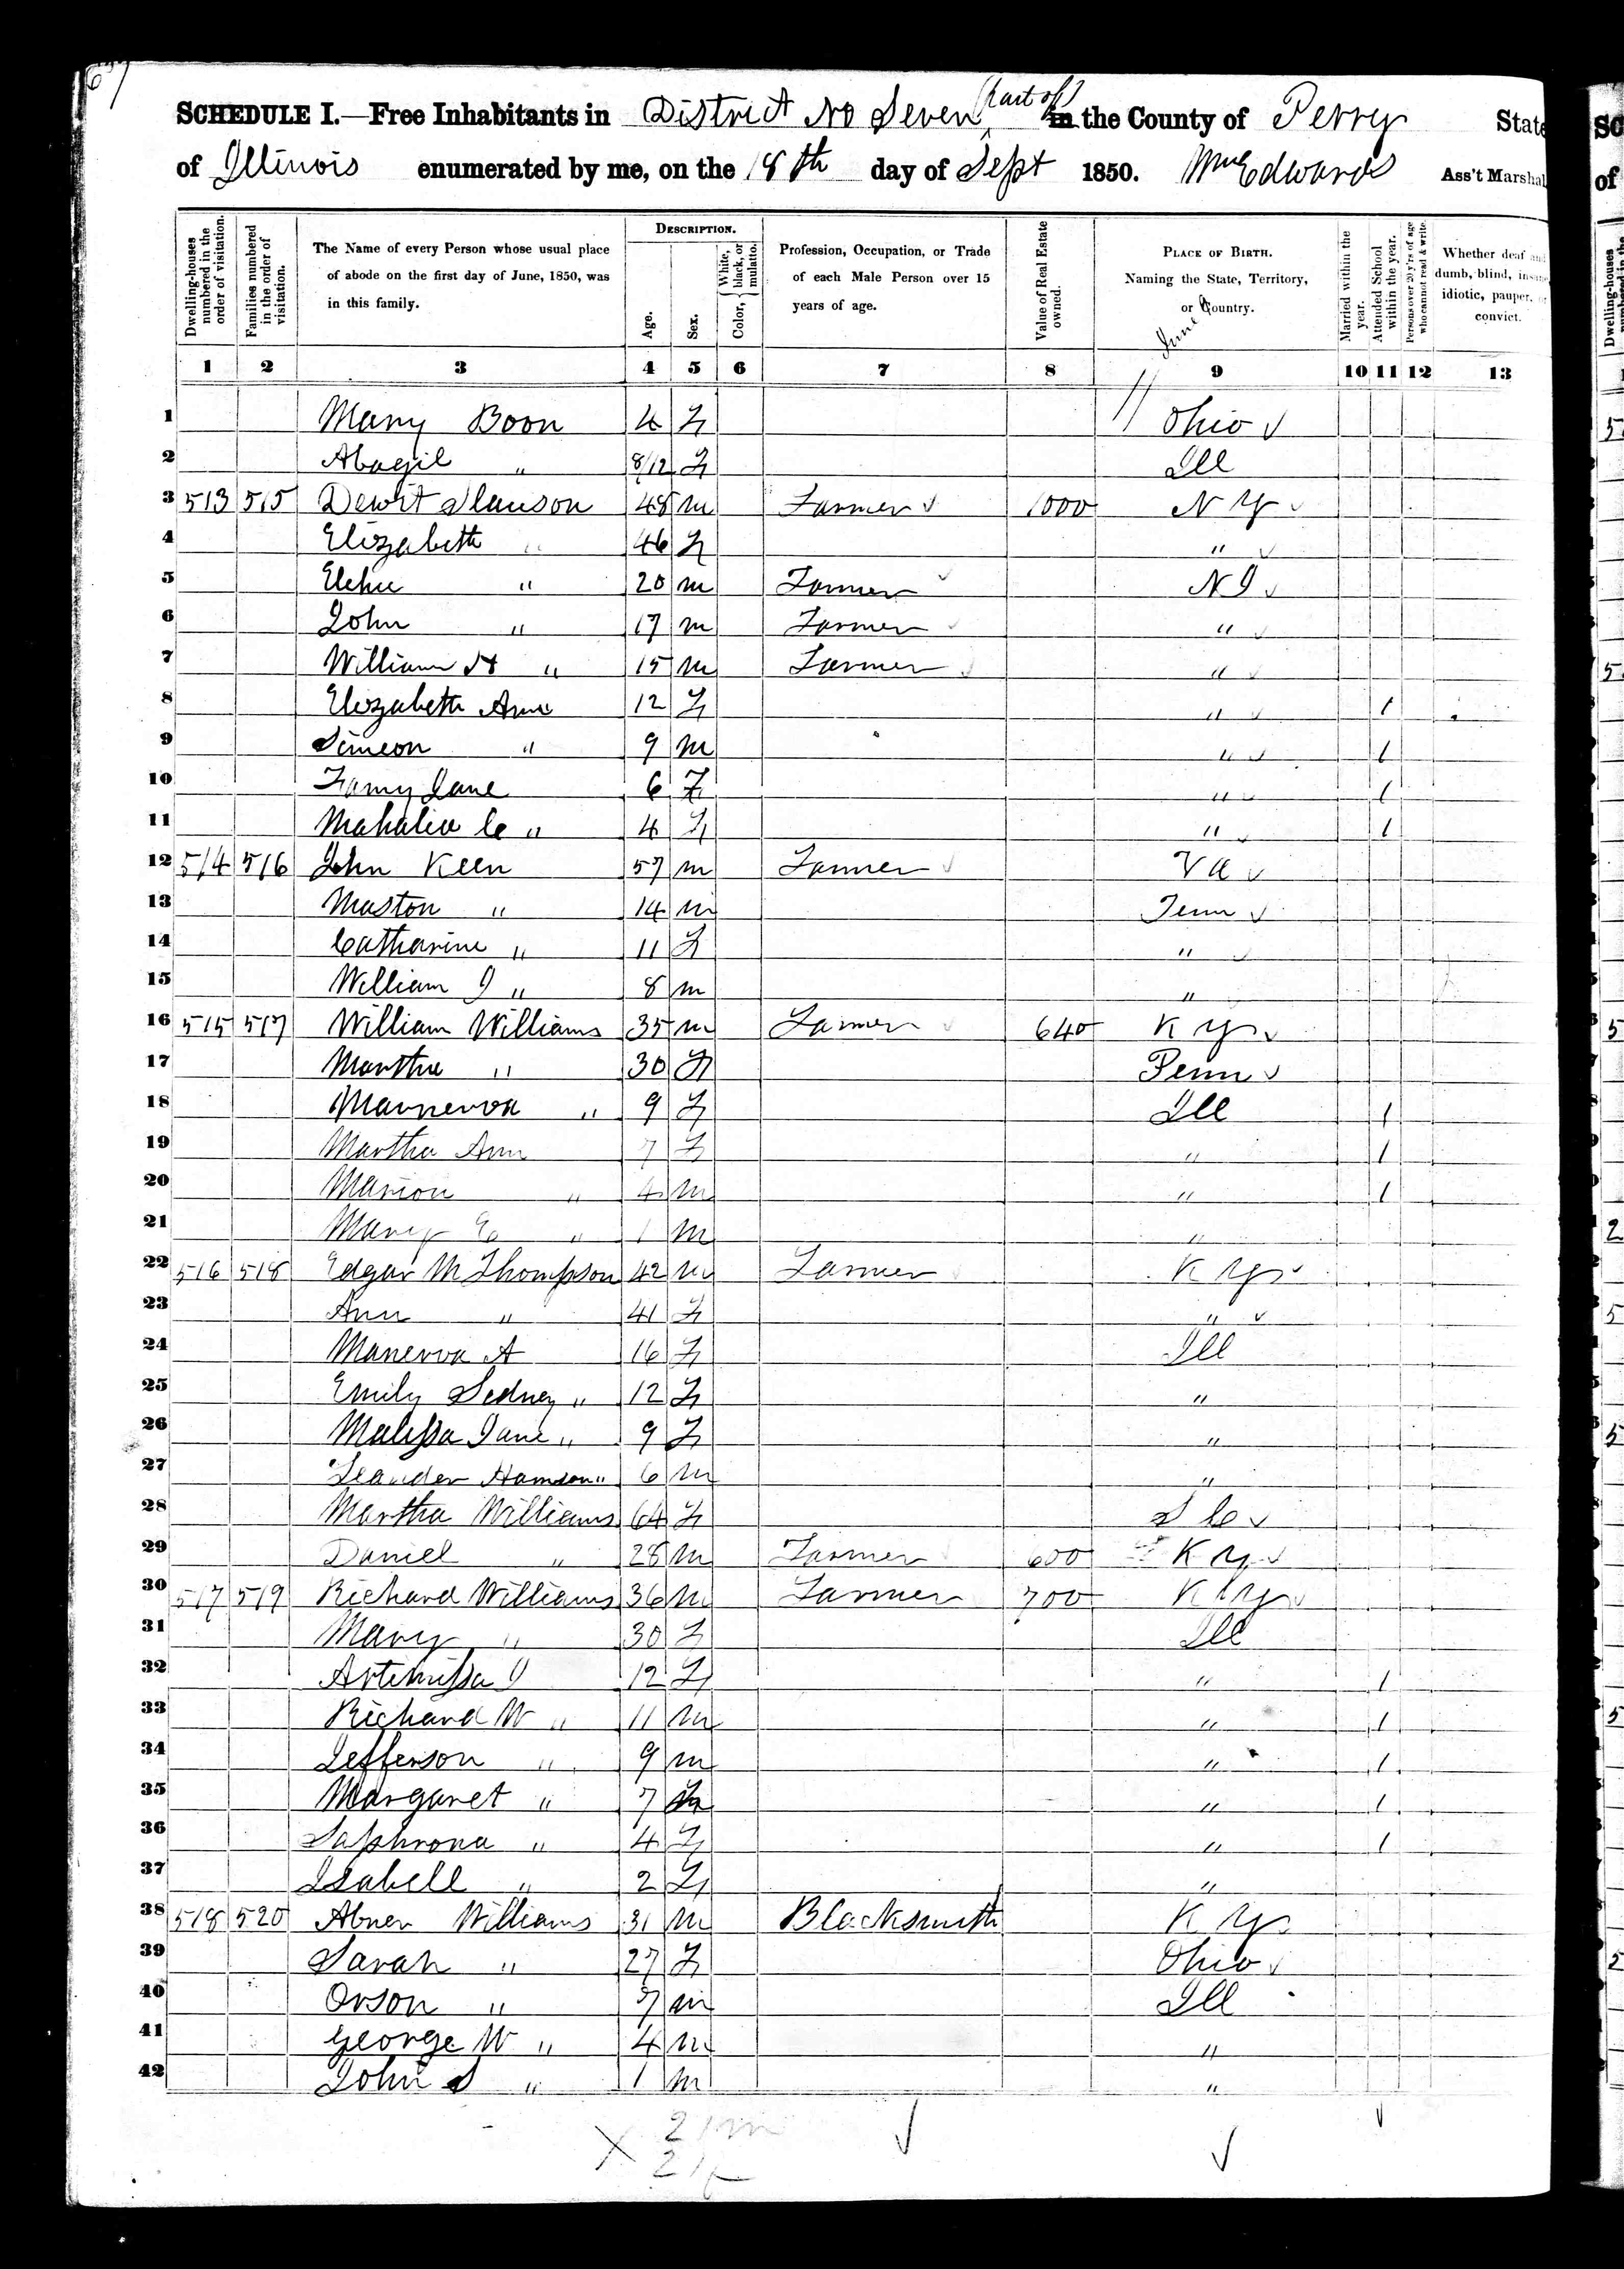 SCHEDULE I.—Free Inhabitants in District No Seven (part of) in the County of Perry State
of Illinois enumerated by me, on the 18th day of Sept 1850. Wm Edwards Ass't Marshal
Dwelling-houses numbered in the order of visitation.
Families numbered in the order of visitation.
The Name of every Person whose usual place of abode on the first day of June, 1850, was in this family.
DESCRIPTION.
Age.
Sex.
Color, { White, black, or mulatto.
Profession, Occupation, or Trade of each Male Person over 15 years of age.
Value of Real Estate owned.
PLACE OF BIRTH.
Naming the State, Territory, or Country.
Married within the year.
Attended School within the year.
Persons over 20 y'rs of age who cannot read & write.
Whether deaf and dumb, blind, insane, idiotic, pauper, or convict.
1 2 3 4 5 6 7 8 9 10 11 12 13
1 Mary Boon 4 F Ohio
2 Abagil " 8/12 F Ill
3 513 515 Dewit Slauson 48 m Farmer 1000 N Y
4 Elizabeth " 46 F "
5 Elehu " 20 m Farmer N J
6 John " 17 m Farmer "
7 William H " 15 m Farmer "
8 Elizabeth Ann 12 F " 1
9 Simeon " 9 m " 1
10 Fanny Jane 6 F " 1
11 Mahalia C " 4 F " 1
12 514 516 John Keen 57 m Farmer Va
13 Maston " 14 m Tenn
14 Catharine " 11 F "
15 William J " 8 m "
16 515 517 William Williams 35 m Farmer 640 Ky
17 Martha " 30 F Penn
18 Marnerva " 9 F Ill 1
19 Martha Ann 7 F " 1
20 Marion " 4 m " 1
21 Mary E " 1 m "
22 516 518 Edgar M Thompson 42 m Farmer Ky
23 Ann " 41 F "
24 Manerva A 16 F Ill
25 Emily Sedney " 12 F "
26 Malissa Jane " 9 F "
27 Leander " 6 m "
28 Martha Williams 64 F S C
29 Daniel " 28 m Farmer 600 Ky
30 517 519 Richard Williams 36 m Farmer 700 Ky
31 Mary " 30 F Ill
32 Artemissa J 12 F " 1
33 Richard W " 11 m " 1
34 Jefferson " 9 m " 1
35 Margaret " 7 F " 1
36 Saphrona " 4 F " 1
37 Isabell " 2 F "
38 518 520 Abner Williams 31 m Blacksmith Ky
39 Sarah " 27 F Ohio
40 Orson " 7 m Ill
41 George W " 4 m "
42 John S " 1 m "
21 m
21 f